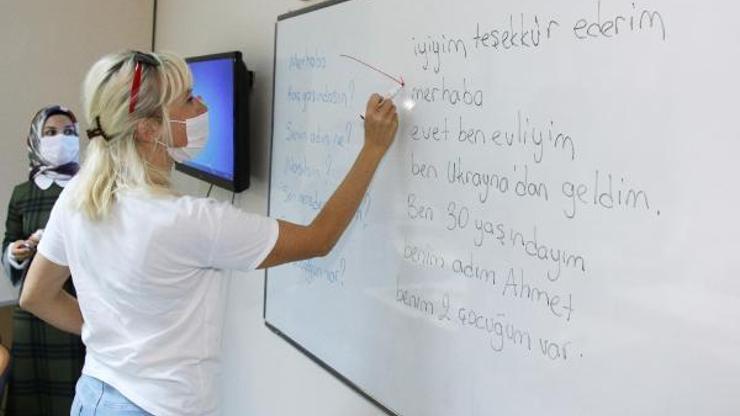 Merhaba
Kaç yaşındasın?
Senin adın ne?
Nasılsın
Sen
iyiyim teşekkür ederim
merhaba
evet ben evliyim
ben Ukrayna'dan geldim.
Ben 30 yaşındayım
benim adım Ahmet
benim 2 çocuğum var.